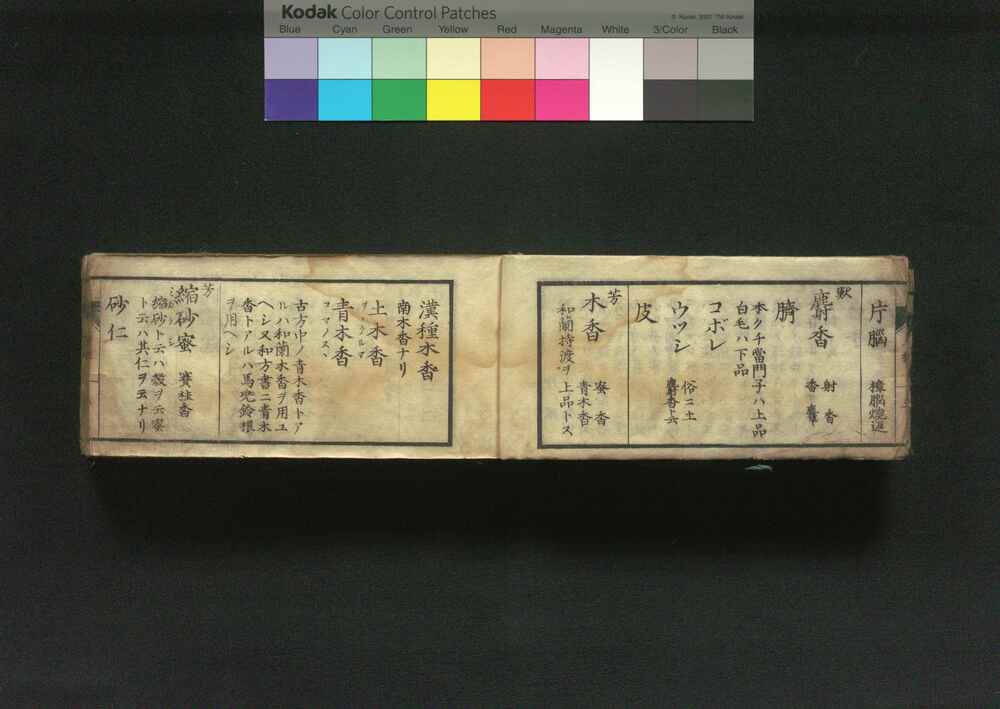 Kodak Color Control Patches
© Kodak, 2007 TM: Kodak
Blue Cyan Green Yellow Red Magenta White 3/Color Black
片腦 樟腦
獸
麝香 射香
臍
本クチ當門子ハ上品
白毛ハ下品
コボレ
ウツシ 俗ニ土
皮
芳
木香 蜜香
青木香
和蘭持渡ヲ上品トス
漢種木香
南木香ナリ
土木香
青木香
古方中ノ青木香トア
ルハ和蘭木香ヲ用ユ
ヘシ又和方書ニ青木
香トアルハ馬兜鈴根
ヲ用ヘシ
芳
縮砂蜜 賽桂香
縮砂ト云ハ殼ヲ云蜜
ト云ハ其仁ヲ云ナリ
砂仁